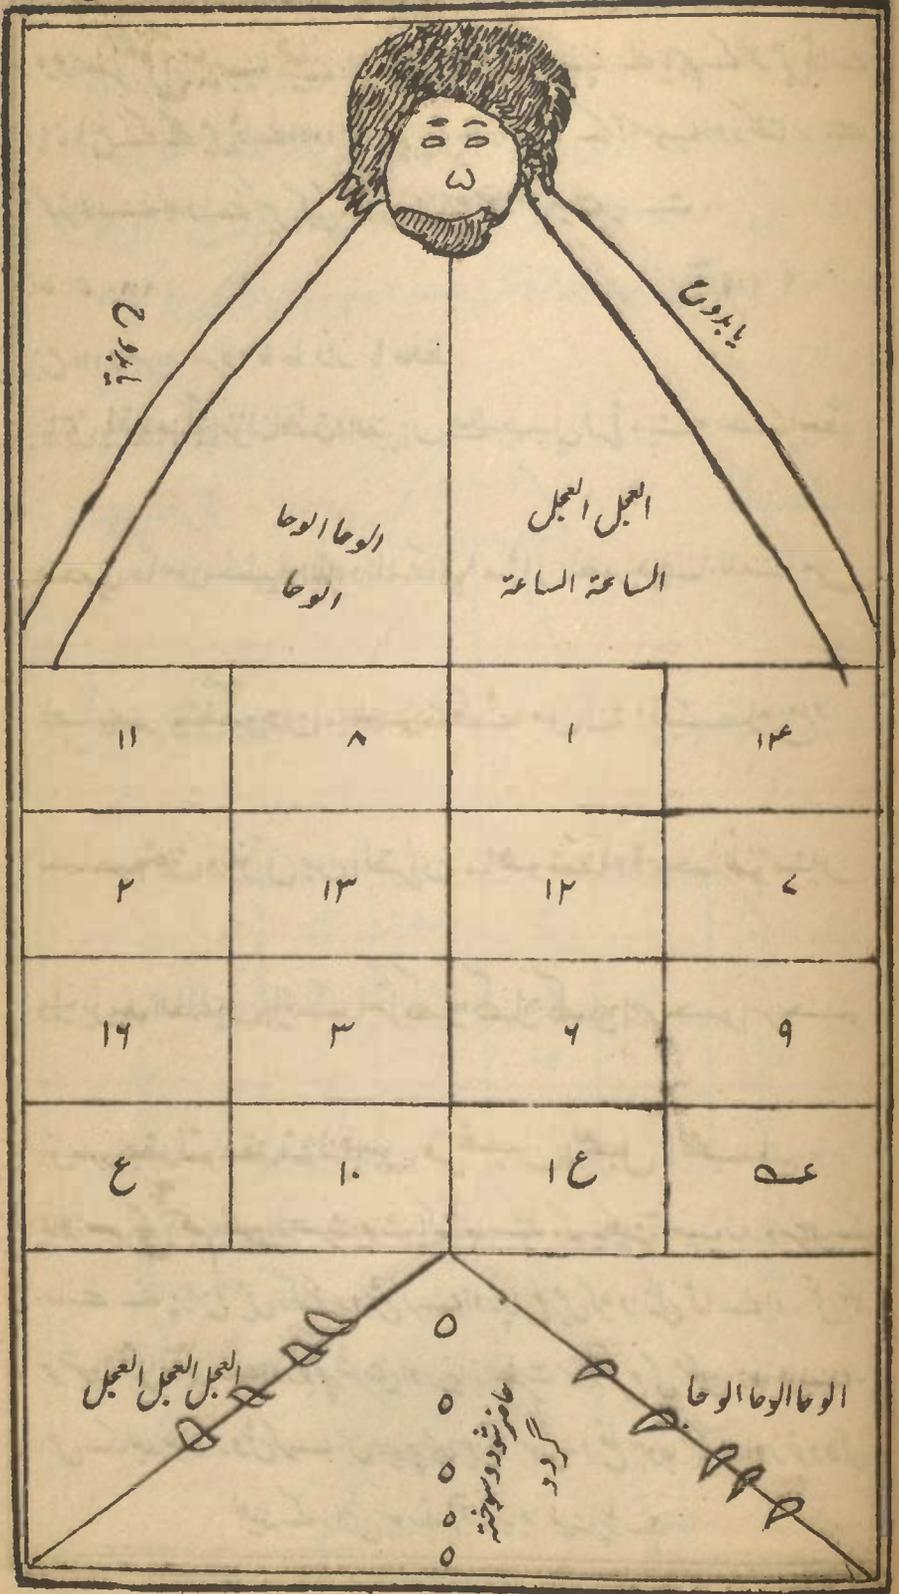 یا بدوح
العجل العجل
الساعة الساعة
الوحا الوحا
الوحا
۱۴ ۱ ۸ ۱۱
۷ ۱۲ ۱۳ ۲
۹ ۶ ۳ ۱۶
۱۰ ع
الوحا الوحا الوحا
حاضر شود و سوخته
گردد
العجل العجل العجل